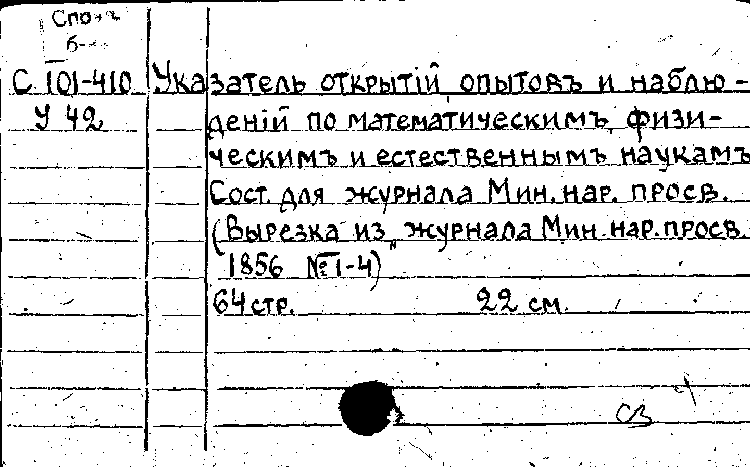 С 101-410 Указатель открытій, опытовъ и наблю-
У 42 деній по математическимъ, физи-
ческимъ и естественнымъ наукамъ
Сост. для журнала Мин. нар. просв.
(Вырезка из „журнала Мин. нар. просв.
1856 № 1-4)
64 стр. 22 см.
СЗ